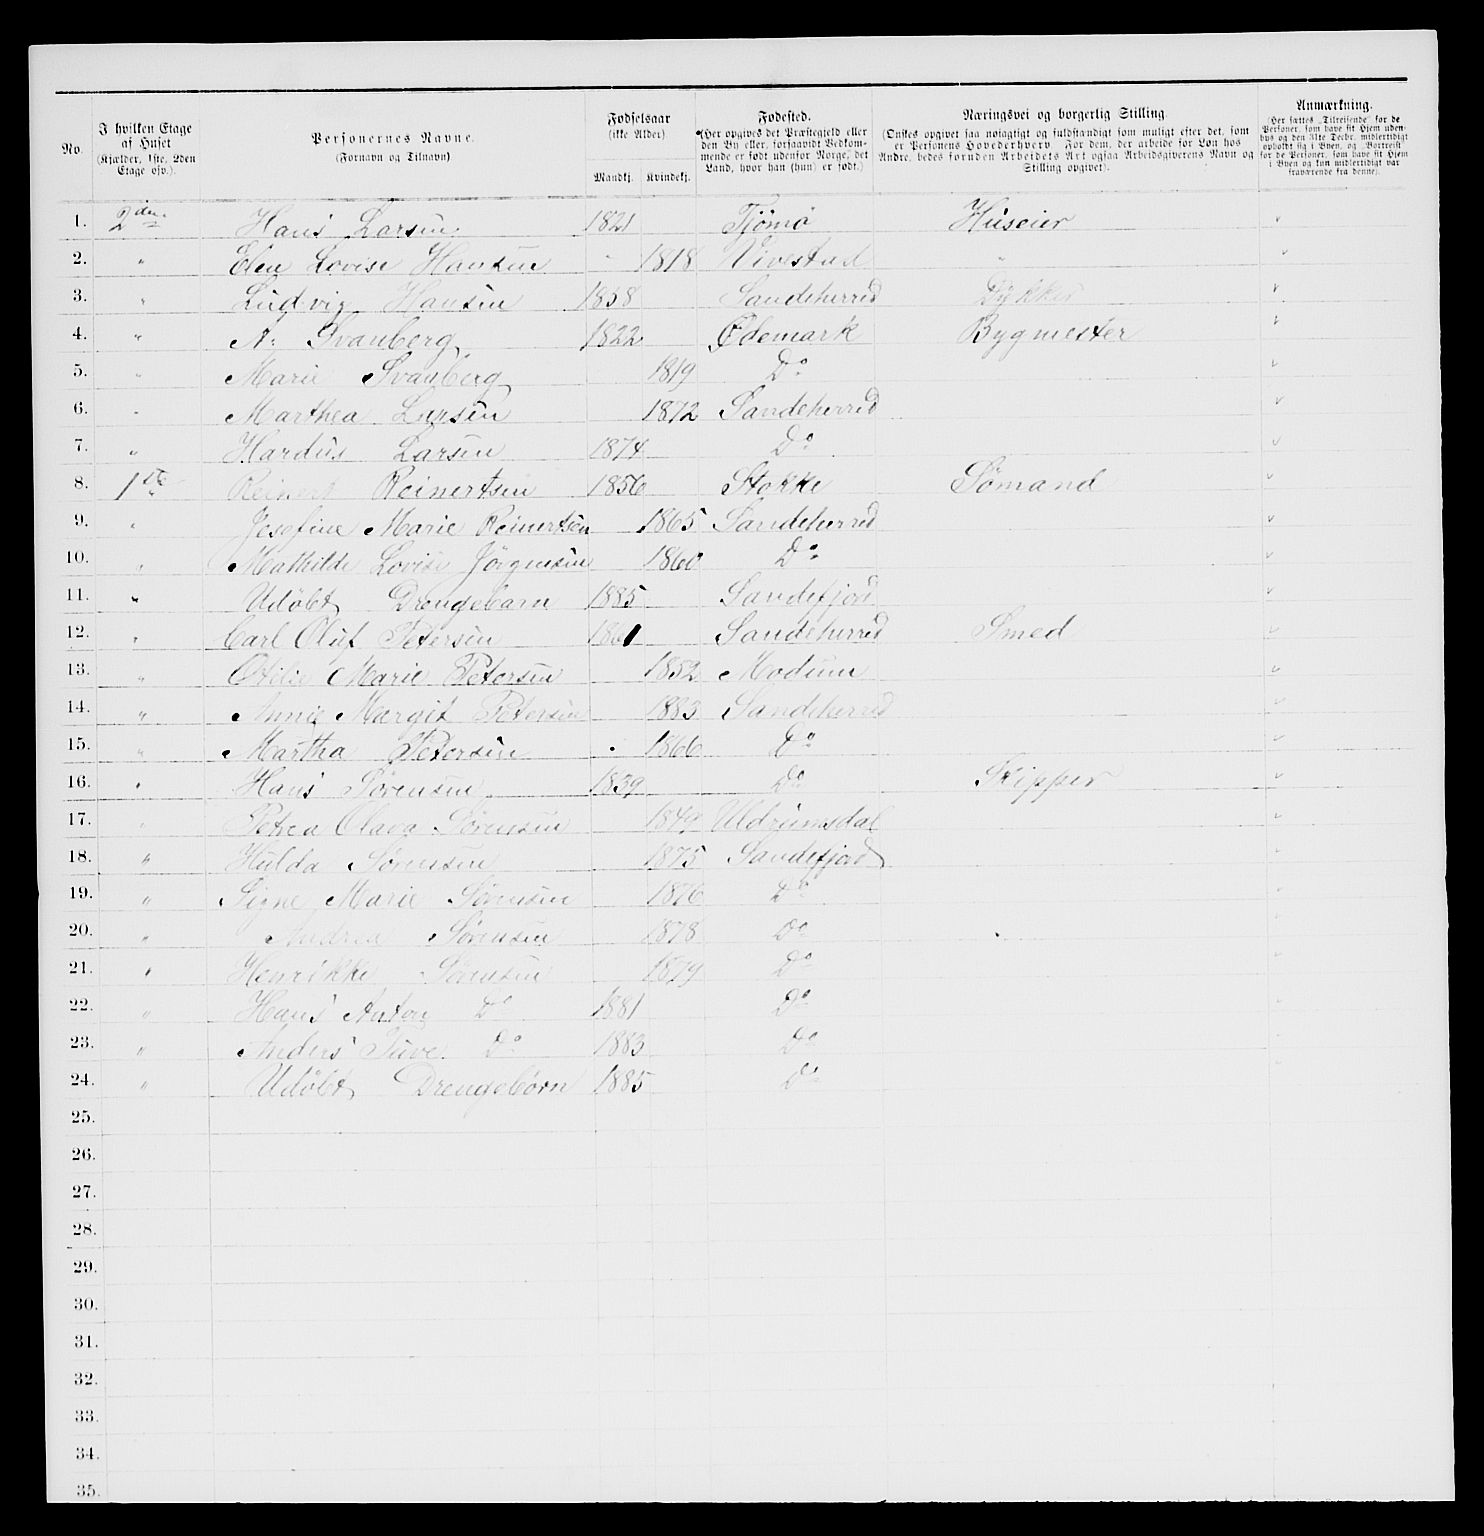 No.
I hvilken Etage af Huset (Kjælder, 1ste, 2den Etage osv.).
Personernes Navne. (Fornavn og Tilnavn)
Fødselsaar (ikke Alder) Mandkj. Kvindekj.
Fødested. (Her opgives det Præstegjeld eller den By eller, forsaavidt Vedkommende er født udenfor Norge, det Land, hvor han (hun) er født.)
Næringsvei og borgerlig Stilling. (Ønskes opgivet saa nøiagtigt og fuldstændigt som muligt efter det, som er Personens Hovederhverv. For dem, der arbeide for Løn hos Andre, bedes foruden Arbeidets Art ogsaa Arbeidsgiverens Navn og Stilling opgivet).
Anmærkning. (Her sættes „Tilreisende“ for de Personer, som have sit Hjem udenbys og den 31te Decbr. midlertidigt opholdt sig i Byen, og „Bortreist“ for de Personer, som have sit Hjem i Byen og kun midlertidigt var fraværende fra denne).
1. 2den Hans Larsen 1821 Tjömö Huseier "
2. " Elen Lovise Hansen " 1818 Vivestad " "
3. " Ludvig Hansen 1858 Sandeherred Dykker "
4. " A. Svanberg 1822 Ødemark Bygmester "
5. " Marie Svanberg 1819 Do "
6. " Marthea Larsen 1872 Sandeherred "
7. " Hardus Larsen 1874 Do "
8. 1ste Reinert Reinertsen 1856 Stokke Sømand "
9. " Josefine Marie Reinertsen 1865 Sandeherred "
10. " Mathilde Lovise Jörgensen 1860 Do "
11. " Udöbt Drengebarn 1885 Sandefjord "
12. " Carl Oluf Petersen 1861 Sandeherred Smed "
13. " Otilie Marie Petersen 1852 Modum "
14. " Annie Margit Petersen 1883 Sandeherred "
15. " Martha Petersen 1866 Do "
16. " Hans Sörensen 1839 Do Skipper "
17. " Petrea Olava Sørensen 1849 "
18. " Hulda Sørensen 1875 Sandefjord "
19. " Signe Marie Sørensen 1876 Do "
20. " Andrea Sørensen 1878 Do "
21. " Henrikke Sørensen 1879 Do "
22. " Hans Anton Do 1881 Do "
23. " Anders Do 1883 Do "
24. " Udöbt Drengebörn 1885 Do "
25.
26.
27.
28.
29.
30.
31.
32.
33.
34.
35.